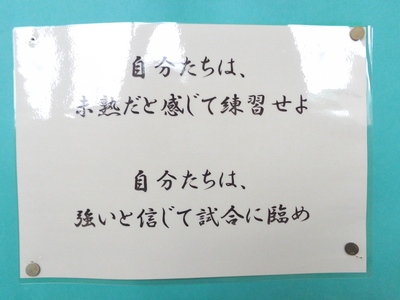 自分たちは、
未熟だと感じて練習せよ
自分たちは、
強いと信じて試合に臨め